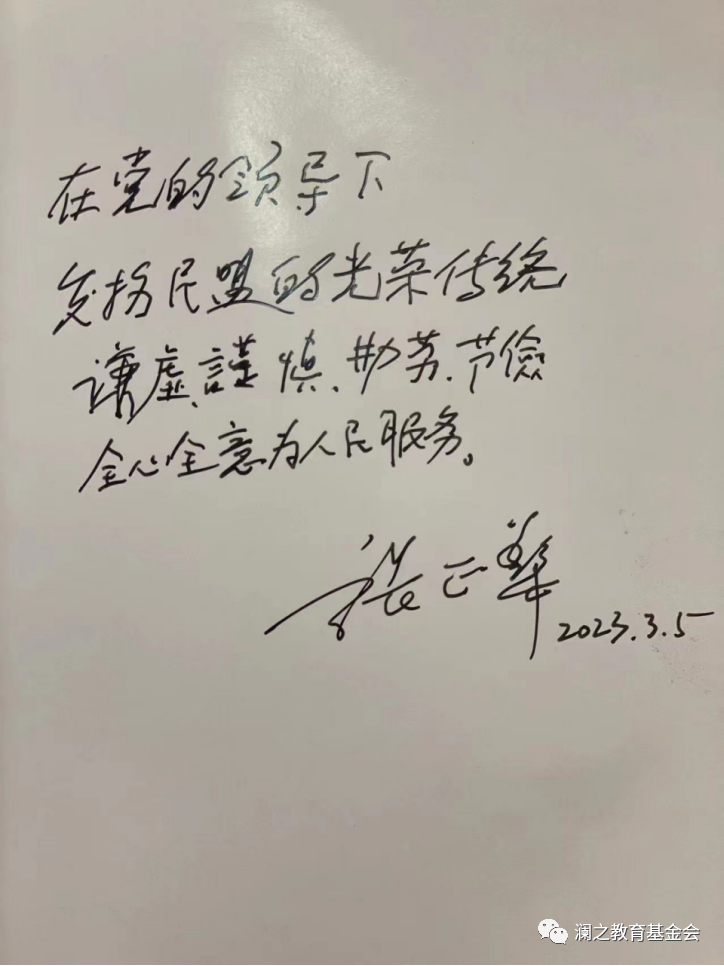 在党的领导下
发扬民盟的光荣传统
谦虚、謹慎、勤劳、节儉
全心全意为人民服务。
張正華 2023.3.5
澜之教育基金会